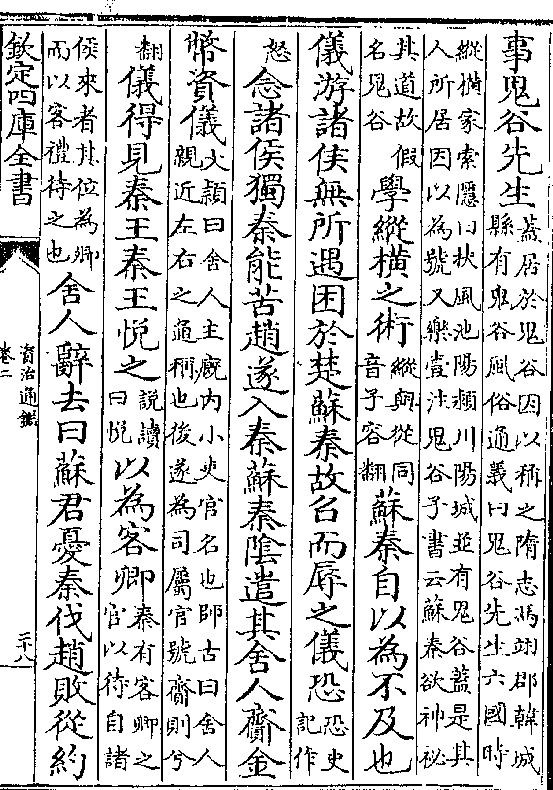 事鬼谷先生蓋居於鬼谷因以稱之隋志馮翊郡韓城縣有鬼谷風俗通義曰鬼谷先生六國時
縱橫家索隱曰扶風池陽潁川陽城並有鬼谷蓋是其人所居因以為號又樂壹注鬼谷子書云蘇秦欲神祕
其道故假名鬼谷學縱橫之術縱與從同音子容翻蘇秦自以為不及也
儀游諸侯無所遇困於楚蘇秦故召而辱之儀恐恐史記作
怒念諸侯獨秦能苦趙遂入秦蘇秦陰遣其舍人齎金
幣資儀文穎曰舍人主廄内小吏官名也師古曰舍人親近左右之通稱也後遂為司屬官號齎則兮
翻儀得見秦王秦王悅之說讀曰悅以為客卿秦有客卿之官以待自諸
侯來者其位為卿而以客禮待之也舍人辭去曰蘇君憂秦伐趙敗從約
欽定四庫全書
資治通鑑
卷二
二十八